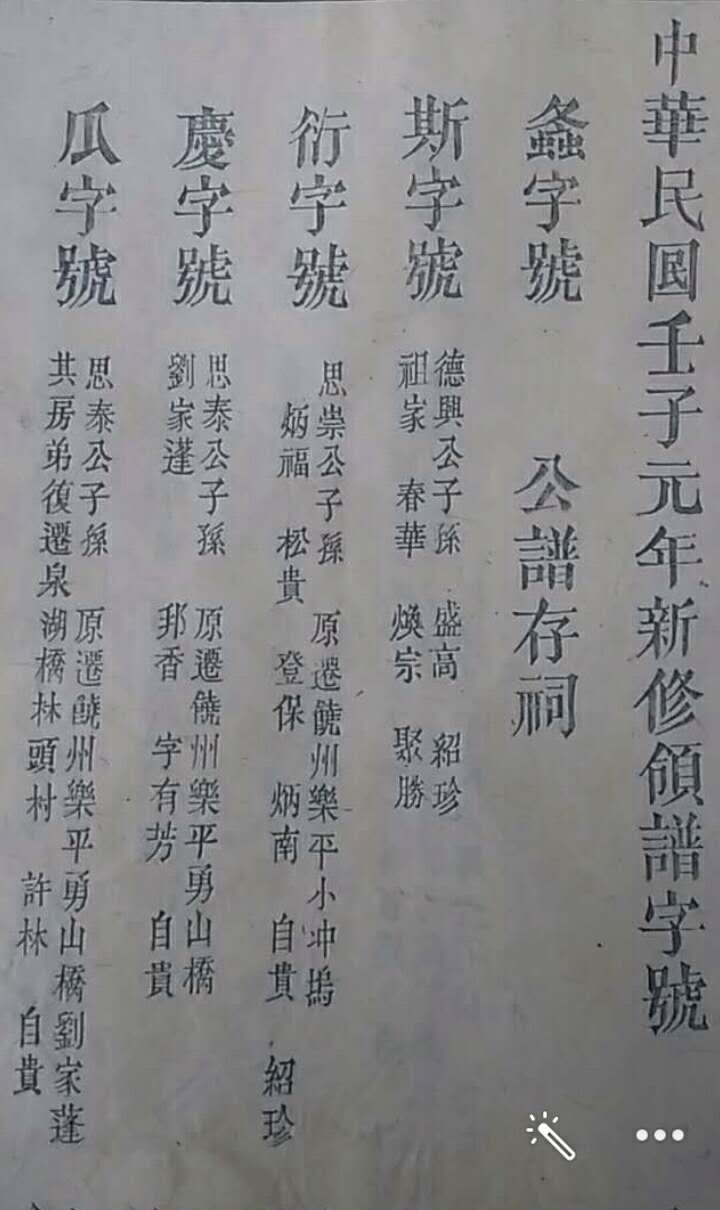 中華民國壬子元年新修領譜字號
螽字號 公譜存祠
斯字號
德興公子孫 盛高 紹珍
祖家 春華 煥宗 聚勝
衍字號
思崇公子孫 原遷饒州樂平小冲塢
炳福 松貴 登保 炳南 自貴 紹珍
慶字號
思泰公子孫 原遷饒州樂平勇山橋
劉家蓬 邦香 字有芳 自貴
瓜字號
思泰公子孫 原遷饒州樂平勇山橋劉家蓬
其房弟復遷泉湖橋林頭村 許林 自貴